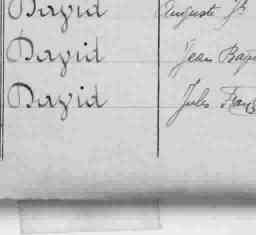 David Auguste Jh
David Jean Bap
David Jules Franç